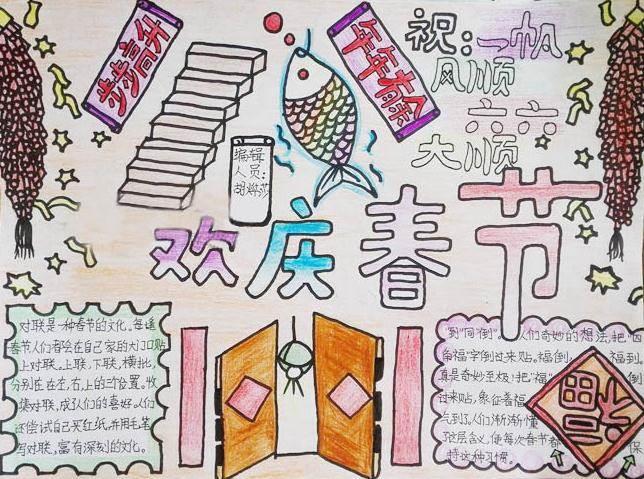 步步高升
年年有余
祝:一帆
风顺
六六
大顺
编辑
人员:
欢庆春节
对联是一种春节的文化。每逢
春节人们都会在自己家的大门口贴
上对联。上联,下联,横批,
分别在左,右,上的三个位置。收
集对联,成了人们的喜好。人们
还尝试自己买红纸,并用毛笔
写对联,富有深刻的文化。
"到"同"倒"。人们奇妙的想法,把"四
角福"字倒过来贴。福倒,福到。
真是奇妙至极!把"福"倒
过来贴,象征着福
气到了。人们渐渐懂
层含义,使每次春节都保
持这种习惯。
福